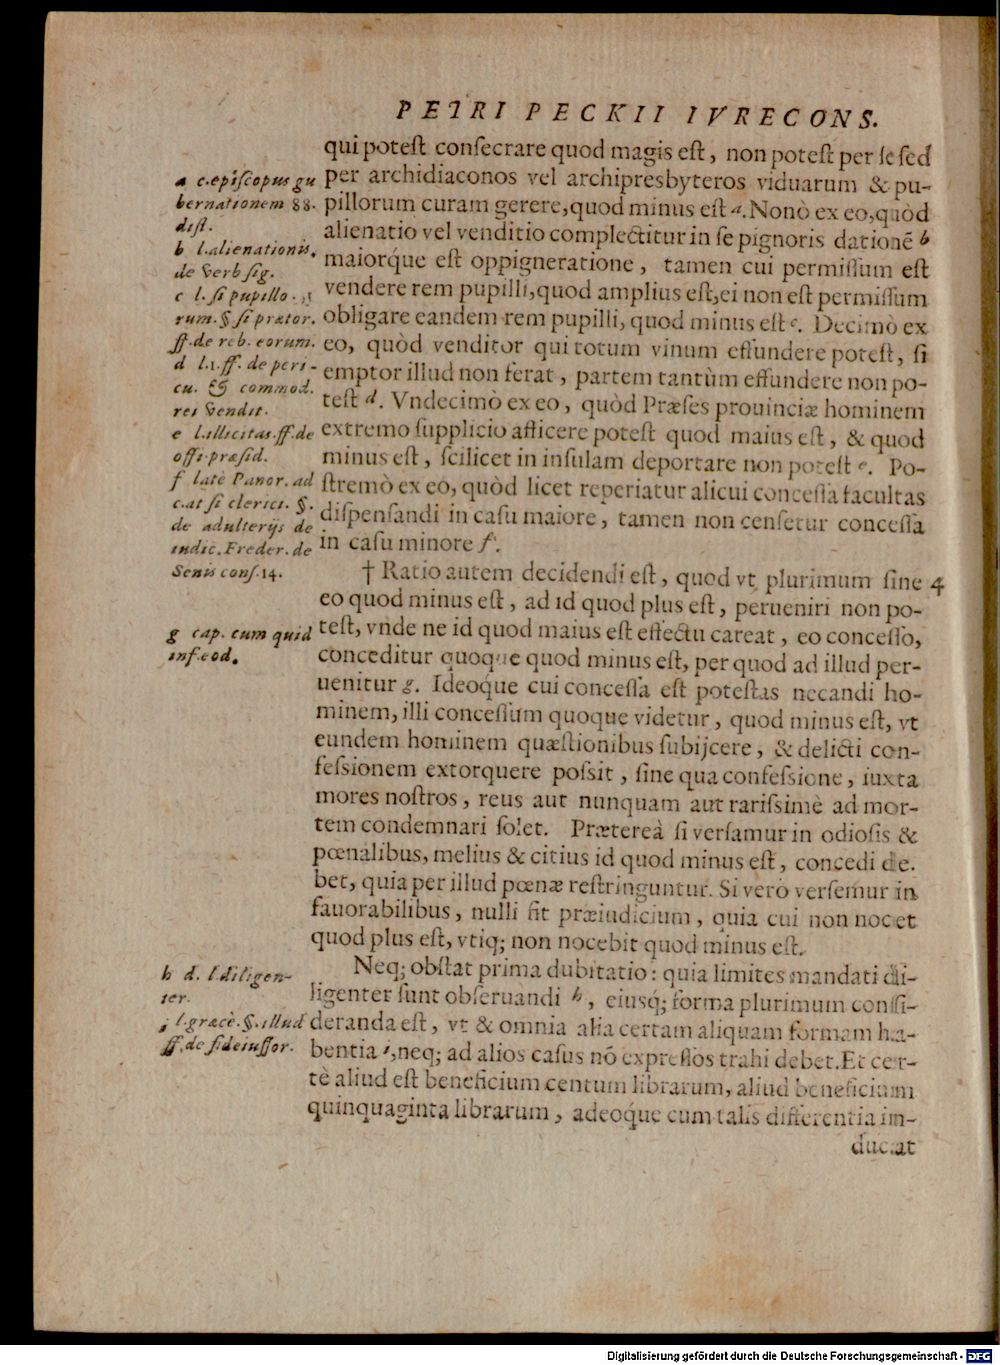 PETRI PECKII IVRECONS.
qui potest consecrare quod magis est, non potest per se sed
per archidiaconos vel archipresbyteros viduarum & pu-
pillorum curam gerere, quod minus est a. Nonò ex eo, quòd
alienatio vel venditio complectitur in se pignoris dationē b
maiorq́ue est oppigneratione, tamen cui permissum est
vendere rem pupilli, quod amplius est, ei non est permissum
obligare eandem rem pupilli, quod minus est c. Decimò ex
eo, quòd venditor qui totum vinum effundere potest, si
emptor illud non ferat, partem tantùm effundere non po-
test d. Vndecimò ex eo, quòd Præses prouinciæ hominem
extremo supplicio afficere potest quod maius est, & quod
minus est, scilicet in insulam deportare non potest e. Po-
stremò ex eo, quòd licet reperiatur alicui concessa facultas
dispensandi in casu maiore, tamen non censetur concessa
in casu minore f.
† Ratio autem decidendi est, quod vt plurimum sine 4
eo quod minus est, ad id quod plus est, perueniri non po-
test, vnde ne id quod maius est effectu careat, eo concesso,
conceditur quoque quod minus est, per quod ad illud per-
uenitur g. Ideoq́ue cui concessa est potestas necandi ho-
minem, illi concessum quoque videtur, quod minus est, vt
eundem hominem quæstionibus subijcere, & delicti con-
fessionem extorquere possit, sine qua confessione, iuxta
mores nostros, reus aut nunquam aut rarissimè ad mor-
tem condemnari solet. Prætereà si versamur in odiosis &
pœnalibus, melius & citius id quod minus est, concedi de.
bet, quia per illud pœnæ restringuntur. Si verò versemur in
fauorabilibus, nulli fit præiudicium, quia cui non nocet
quod plus est, vtiq; non nocebit quod minus est.
Neq; obstat prima dubitatio: quia limites mandati di-
ligenter sunt obseruandi h, eiusq́; forma plurimum consi-
deranda est, vt & omnia alia certam aliquam formam ha-
bentia i, neq; ad alios casus nō expressos trahi debet. Et cer-
tè aliud est beneficium centum librarum, aliud beneficium
quinquaginta librarum, adeoq́ue cum talis differentia in-
ducat
a c. episcopus gu
bernationem 88.
dist.
b l. alienationis.
de verb sig.
c l. si pupillo.
rum. § si prætor.
ff. de reb. eorum.
d l.1. ff. de peri-
cu. & commod.
rei vendit.
e l. illicitas. ff. de
offi. præsid.
f late Panor. ad
c. at si clerici. §.
de adulterijs de
iudic. Freder. de
Senis cons. 14.
g cap. cum quid
inf. eod.
h d. l. diligen-
ter.
i l. græcè. §. illud
ff. de fideiussor.
Digitalisierung gefördert durch die Deutsche Forschungsgemeinschaft - DFG